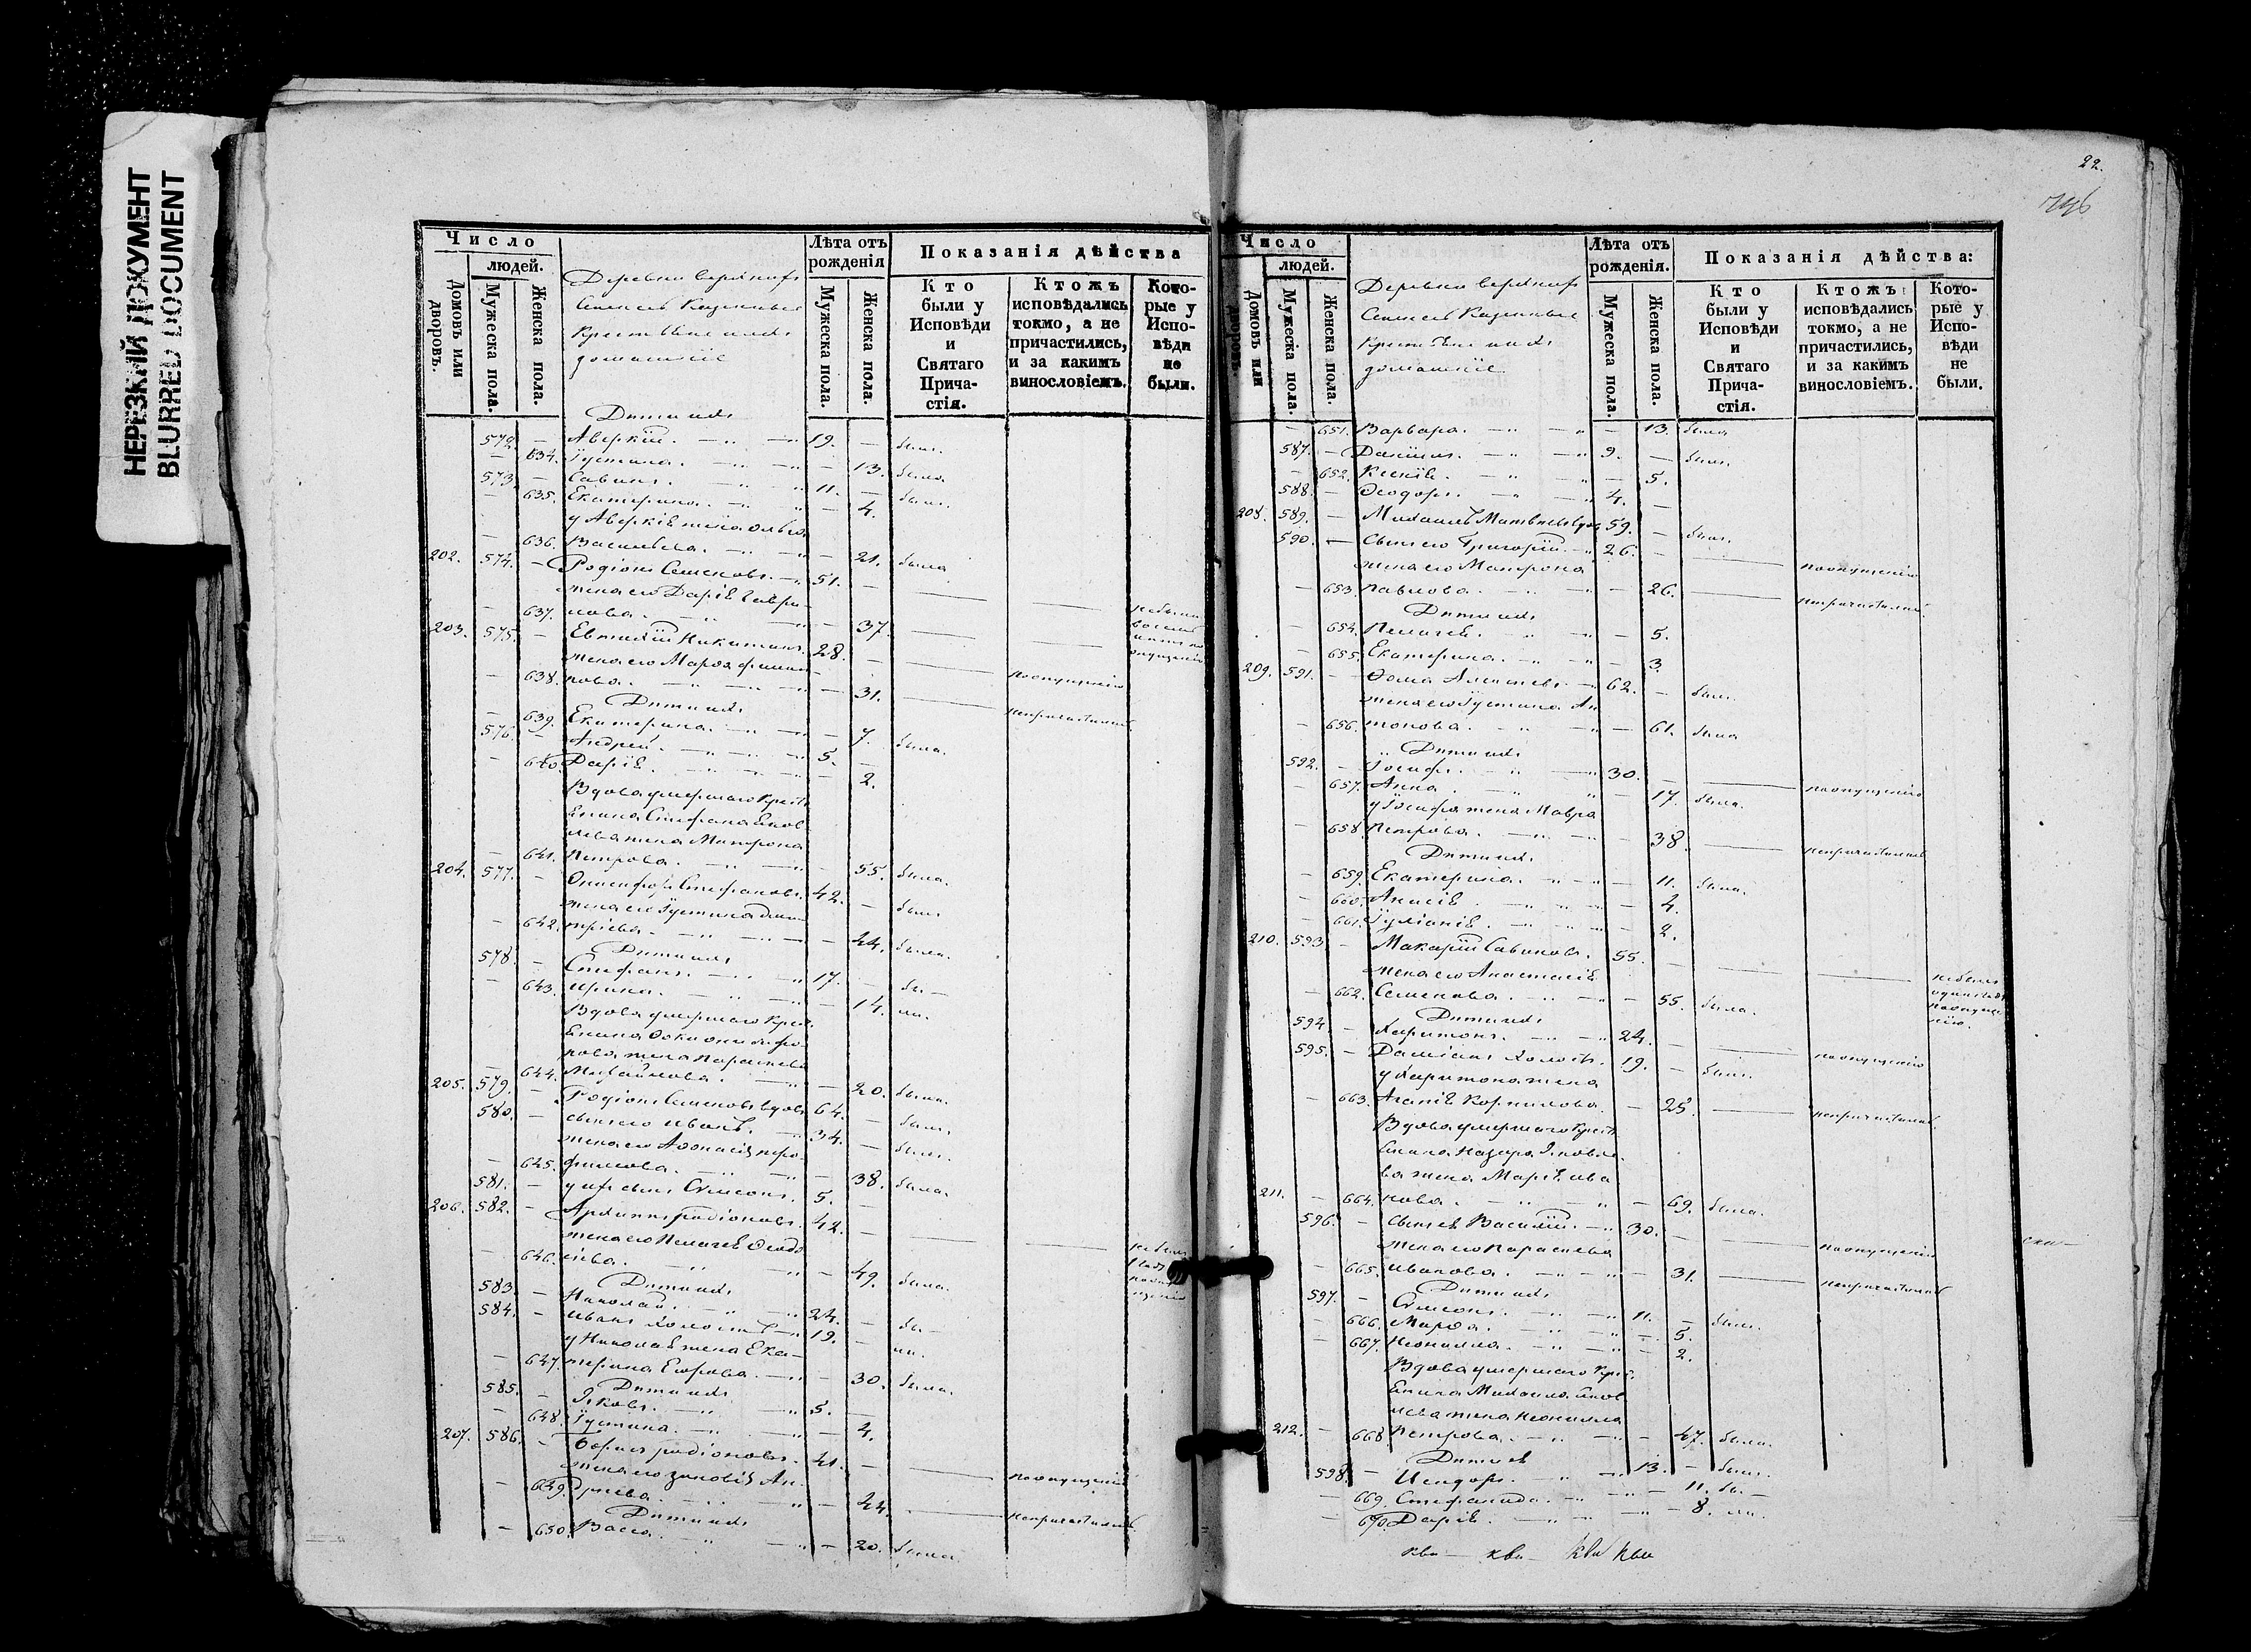 НЕРЕЗКИЙ ДОКУМЕНТ
BLURRED DOCUMENT
Число
людей.
Домовъ или дворовъ.
Мужеска пола.
Женска пола.
Деревни
Казенные
домашніе
Лѣта отъ рожденія
Мужеска пола.
Женска пола.
Показанія дѣйства
Кто были у Исповѣди и Святаго Прича-стія.
Ктожъ исповѣдались токмо, а не причастились, и за какимъ винословіемъ.
Кото-рые у Испо-вѣди не были.
Дѣти ихъ
572. — Аверкій. 19. — былъ.
— 634. Іустина. — 13. была.
573. — Савинъ. 11. — былъ.
— 635. Екатерина. — 4.
у Аверкія жена
— 636. Васильева. — 21. была
202. 574. — Родіонъ Семеновъ. 51. —
жена его Дарія Гаври-
— 637. лова. — 37.
203. 575. — Евтихій Никитинъ. 28. —
жена его Марѳа
— 638. пова. — 31.
Дѣти ихъ
— 639. Екатерина. — 7. была.
576. — Андрей. 5. —
— 640. Дарія. — 2.
Вдова умершаго Крест
янина Стефана Яков
лева жена Матрона
— 641. Петрова. — 55. была.
204. 577. — Онисифоръ Стефановъ. 42. — былъ
жена его Іустина Дими
— 642. тріева. — 44. была.
Дѣти ихъ
578. — Стефанъ. 17. — бы—
— 643. Ирина. — 14. ли.
Вдова умершаго Крест
жена Параскева
— 644. Михайлова. — 20. была.
205. 579. — Родіонъ Семеновъ вдовъ 64. — былъ.
580. — сынъ его Иванъ. 34. — былъ.
жена его Аѳонасія Тро-
— 645. фимова. — 38. была.
581. — у нихъ сынъ Сѵмеонъ. 5. —
206. 582. — Архиппъ Родіоновъ. 42. —
жена его Пелагея Ѳеодо
— 646. сіева. — 49. была.
Дѣти ихъ
583. — Николай. 24. — бы—
584. — Иванъ холостъ 19. — ли.
у Николая жена Ека—
— 647. терина Егорова. — 30. была.
Дѣти ихъ
585. — Яковъ. 5. —
— 648. Іустина. — 4.
207. 586. — Борисъ Родіоновъ. 41. — поопущенію
жена его Зиновія Ан-
— 649. дреева. — 44. непричастились
Дѣти ихъ
— 650. Васса. — 20. была
22.
Число
людей.
Домовъ или дворовъ.
Мужеска пола.
Женска пола.
Деревни
Казенные
домашніе
Лѣта отъ рожденія.
Мужеска пола.
Женска пола.
Показанія дѣйства:
Кто были у Исповѣди и Святаго Прича-стія.
Ктожъ исповѣдались токмо, а не причастились, и за какимъ винословіемъ.
Кото-рые у Испо-вѣди не были.
— 651. Варвара. — 13. была
587. — Даніилъ. 9. — былъ.
— 652. Ксенія. — 5.
588. — Ѳеодоръ. 4. —
208. 589. — Михаилъ Матвѣевъ вдов 59. — былъ.
590. — Сынъ его Григорій. 26. — поопущенію
жена его Матрона
— 653. Павлова. — 26. непричастились
Дѣти ихъ
— 654. Пелагея. — 5.
— 655. Екатерина. — 3.
209. 591. — Ѳома Алексѣевъ. 62. — былъ.
жена его Іустина Ан
— 656. тонова. — 61. была
Дѣти ихъ
592. — Іосифъ. 30. — поопущенію
— 657. Анна. — 17. была.
у Іосифа жена Мавра
— 658. Петрова. — 38. непричастились
Дѣти ихъ
— 659. Екатерина. — 11. была.
— 660. Анисія. — 4.
— 661. Іуліанія. — 2.
210. 593. — Макарій Савиновъ. 55. —
жена его Анастасія
— 662. Семенова. — 55. была.
Дѣти ихъ
594. — Харитонъ. 24. — поопущенію
595. — Даміанъ холостъ. 19. — былъ.
у Харитона жена
— 663. Агапія Корнилова. — 25. непричастились
Вдова умершаго Крест
янина Назара Яковле-
ва жена Марія Ива
211. — 664. нова. — 69. была.
596. — сынъ ея Василій. 30. — поопущенію
жена его Параскева
— 665. Иванова. — 31. непричастились
Дѣти ихъ
597. — Сѵмеонъ. 11. — былъ.
— 666. Марѳа. — 5.
— 667. Неонилла. — 2.
Вдова умершаго Крес
янина Михаила Яков
лева жена Неонилла
212. — 668. Петрова. — 47. была.
Дѣти ея
598. — Исидоръ. 13. — былъ.
— 669. Стефанида. — 11. бы—
— 670. Дарія. — 8. ли.